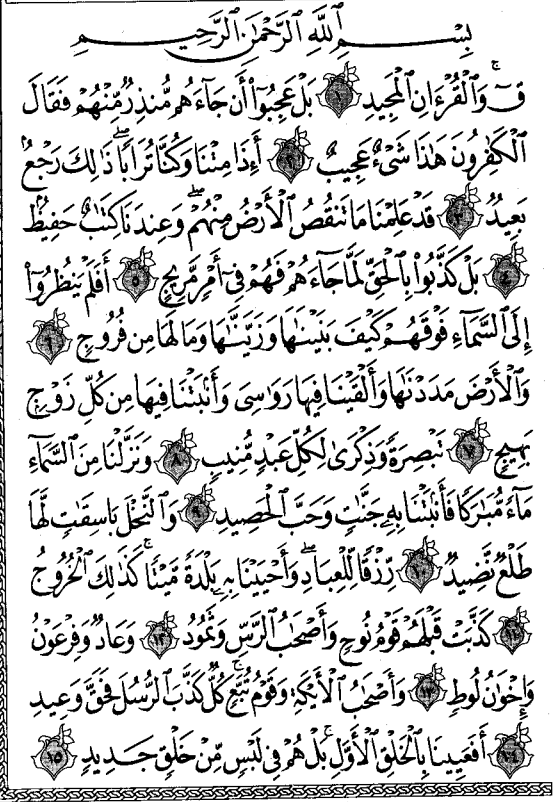 بِسْمِ ٱللَّهِ ٱلرَّحْمَٰنِ ٱلرَّحِيمِ
قٓ ۚ وَٱلْقُرْءَانِ ٱلْمَجِيدِ ١ بَلْ عَجِبُوٓا۟ أَن جَآءَهُم مُّنذِرٌ مِّنْهُمْ فَقَالَ
ٱلْكَٰفِرُونَ هَٰذَا شَىْءٌ عَجِيبٌ ٢ أَءِذَا مِتْنَا وَكُنَّا تُرَابًا ۖ ذَٰلِكَ رَجْعٌۢ
بَعِيدٌ ٣ قَدْ عَلِمْنَا مَا تَنقُصُ ٱلْأَرْضُ مِنْهُمْ ۖ وَعِندَنَا كِتَٰبٌ حَفِيظٌۢ
٤ بَلْ كَذَّبُوا۟ بِٱلْحَقِّ لَمَّا جَآءَهُمْ فَهُمْ فِىٓ أَمْرٍ مَّرِيجٍ ٥ أَفَلَمْ يَنظُرُوٓا۟
إِلَى ٱلسَّمَآءِ فَوْقَهُمْ كَيْفَ بَنَيْنَٰهَا وَزَيَّنَّٰهَا وَمَا لَهَا مِن فُرُوجٍ ٦
وَٱلْأَرْضَ مَدَدْنَٰهَا وَأَلْقَيْنَا فِيهَا رَوَٰسِىَ وَأَنۢبَتْنَا فِيهَا مِن كُلِّ زَوْجٍۭ
بَهِيجٍ ٧ تَبْصِرَةً وَذِكْرَىٰ لِكُلِّ عَبْدٍ مُّنِيبٍ ٨ وَنَزَّلْنَا مِنَ ٱلسَّمَآءِ
مَآءً مُّبَٰرَكًا فَأَنۢبَتْنَا بِهِۦ جَنَّٰتٍ وَحَبَّ ٱلْحَصِيدِ ٩ وَٱلنَّخْلَ بَاسِقَٰتٍ لَّهَا
طَلْعٌ نَّضِيدٌ ١٠ رِّزْقًا لِّلْعِبَادِ ۖ وَأَحْيَيْنَا بِهِۦ بَلْدَةً مَّيْتًا ۚ كَذَٰلِكَ ٱلْخُرُوجُ
١١ كَذَّبَتْ قَبْلَهُمْ قَوْمُ نُوحٍ وَأَصْحَٰبُ ٱلرَّسِّ وَثَمُودُ ١٢ وَعَادٌ وَفِرْعَوْنُ
وَإِخْوَٰنُ لُوطٍ ١٣ وَأَصْحَٰبُ ٱلْأَيْكَةِ وَقَوْمُ تُبَّعٍ ۚ كُلٌّ كَذَّبَ ٱلرُّسُلَ فَحَقَّ وَعِيدِ
١٤ أَفَعَيِينَا بِٱلْخَلْقِ ٱلْأَوَّلِ ۚ بَلْ هُمْ فِى لَبْسٍ مِّنْ خَلْقٍ جَدِيدٍ ١٥